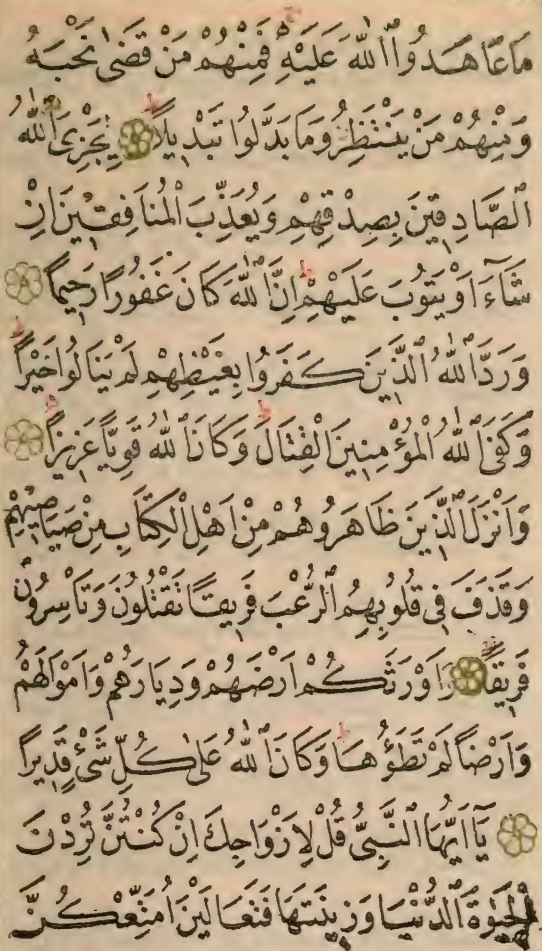 مَاعَاهَدُوا اللّٰهَ عَلَيْهِ فَمِنْهُمْ مَنْ قَضٰى نَحْبَهُ
وَمِنْهُمْ مَنْ يَنْتَظِرُ وَمَا بَدَّلُوا تَبْدِيلًا لِيَجْزِىَ اللّٰهُ
الصَّادِقِينَ بِصِدْقِهِمْ وَيُعَذِّبَ الْمُنَافِقِينَ اِنْ
شَآءَ اَوْ يَتُوبَ عَلَيْهِمْ اِنَّ اللّٰهَ كَانَ غَفُورًا رَحِيمًا
وَرَدَّ اللّٰهُ الَّذِينَ كَفَرُوا بِغَيْظِهِمْ لَمْ يَنَالُوا خَيْرًا
وَكَفَى اللّٰهُ الْمُؤْمِنِينَ الْقِتَالَ وَكَانَ اللّٰهُ قَوِيًّا عَزِيزًا
وَاَنْزَلَ الَّذِينَ ظَاهَرُوهُمْ مِنْ اَهْلِ الْكِتَابِ مِنْ صَيَاصِيهِمْ
وَقَذَفَ فِى قُلُوبِهِمُ الرُّعْبَ فَرِيقًا تَقْتُلُونَ وَتَأْسِرُونَ
فَرِيقًا وَاَوْرَثَكُمْ اَرْضَهُمْ وَدِيَارَهُمْ وَاَمْوَالَهُمْ
وَاَرْضًا لَمْ تَطَؤُهَا وَكَانَ اللّٰهُ عَلٰى كُلِّ شَىْءٍ قَدِيرًا
يَآ اَيُّهَا النَّبِىُّ قُلْ لِاَزْوَاجِكَ اِنْ كُنْتُنَّ تُرِدْنَ
الْحَيٰوةَ الدُّنْيَا وَزِينَتَهَا فَتَعَالَيْنَ اُمَتِّعْكُنَّ